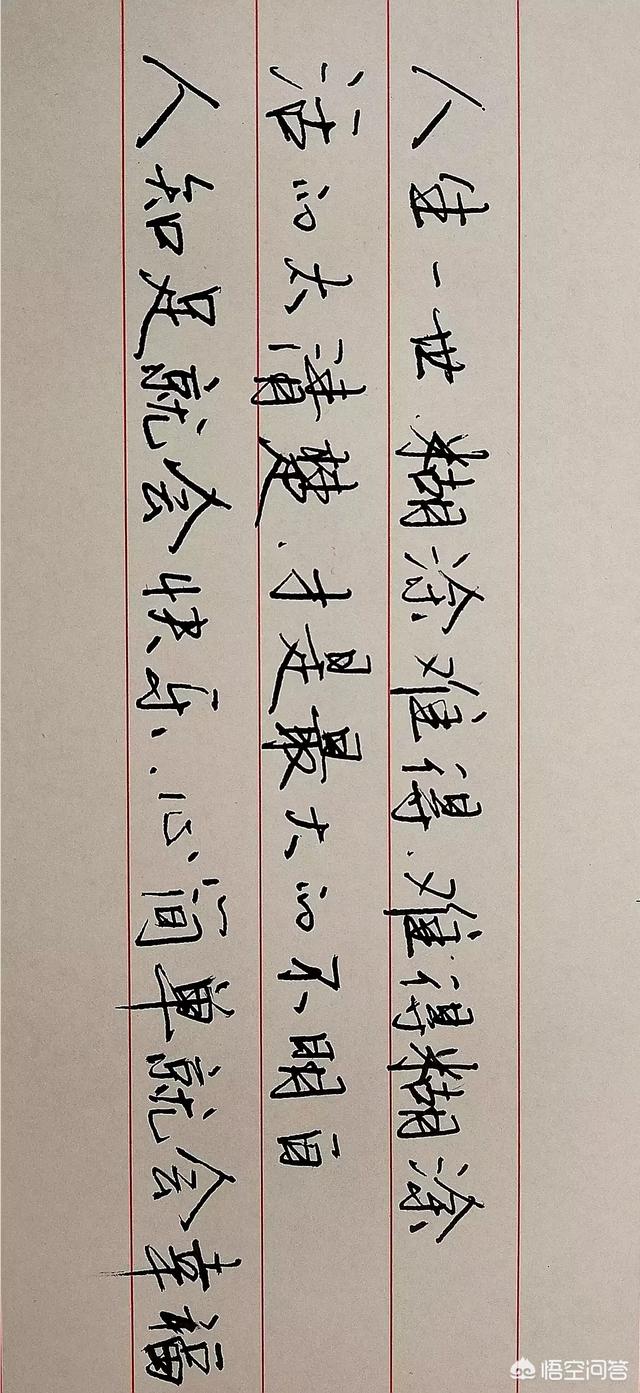 人生一世.糊涂难得.难得糊涂
活的太清楚.才是最大的不明白
人知足就会快乐.心简单就会幸福
悟空问答